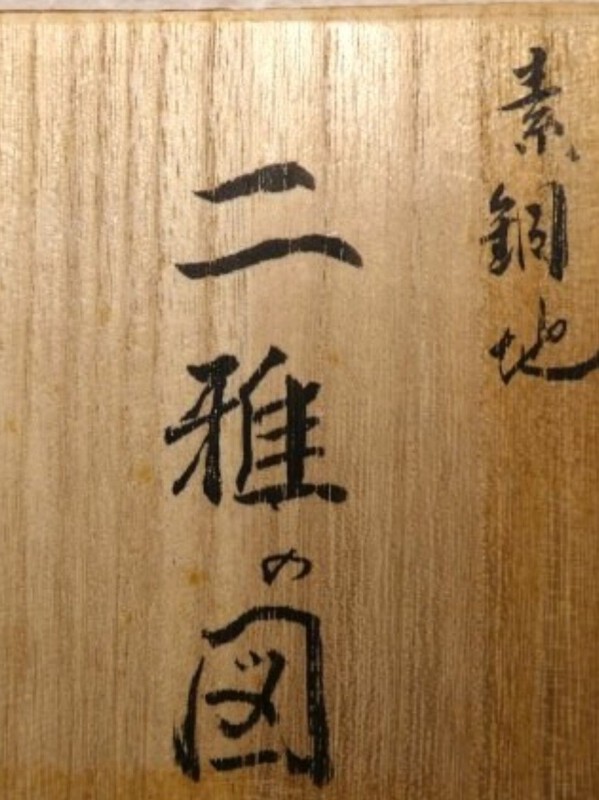 素銅地
二雅の図